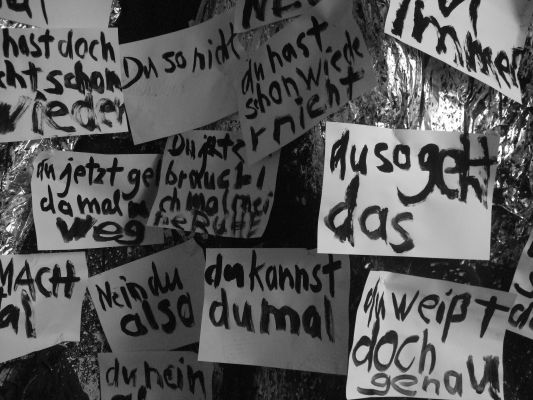 hast doch
schon
wieder
Du so nicht
du hast
schon wiede
r nicht
immer
du jetzt gel
da mal
weg
Du jetz
brauch I
ch mal mei
ne Ruhe
du so geht
das
MACH
al
Nein du
also
du kannst
du mal
du weißt
doch
genau
du nein